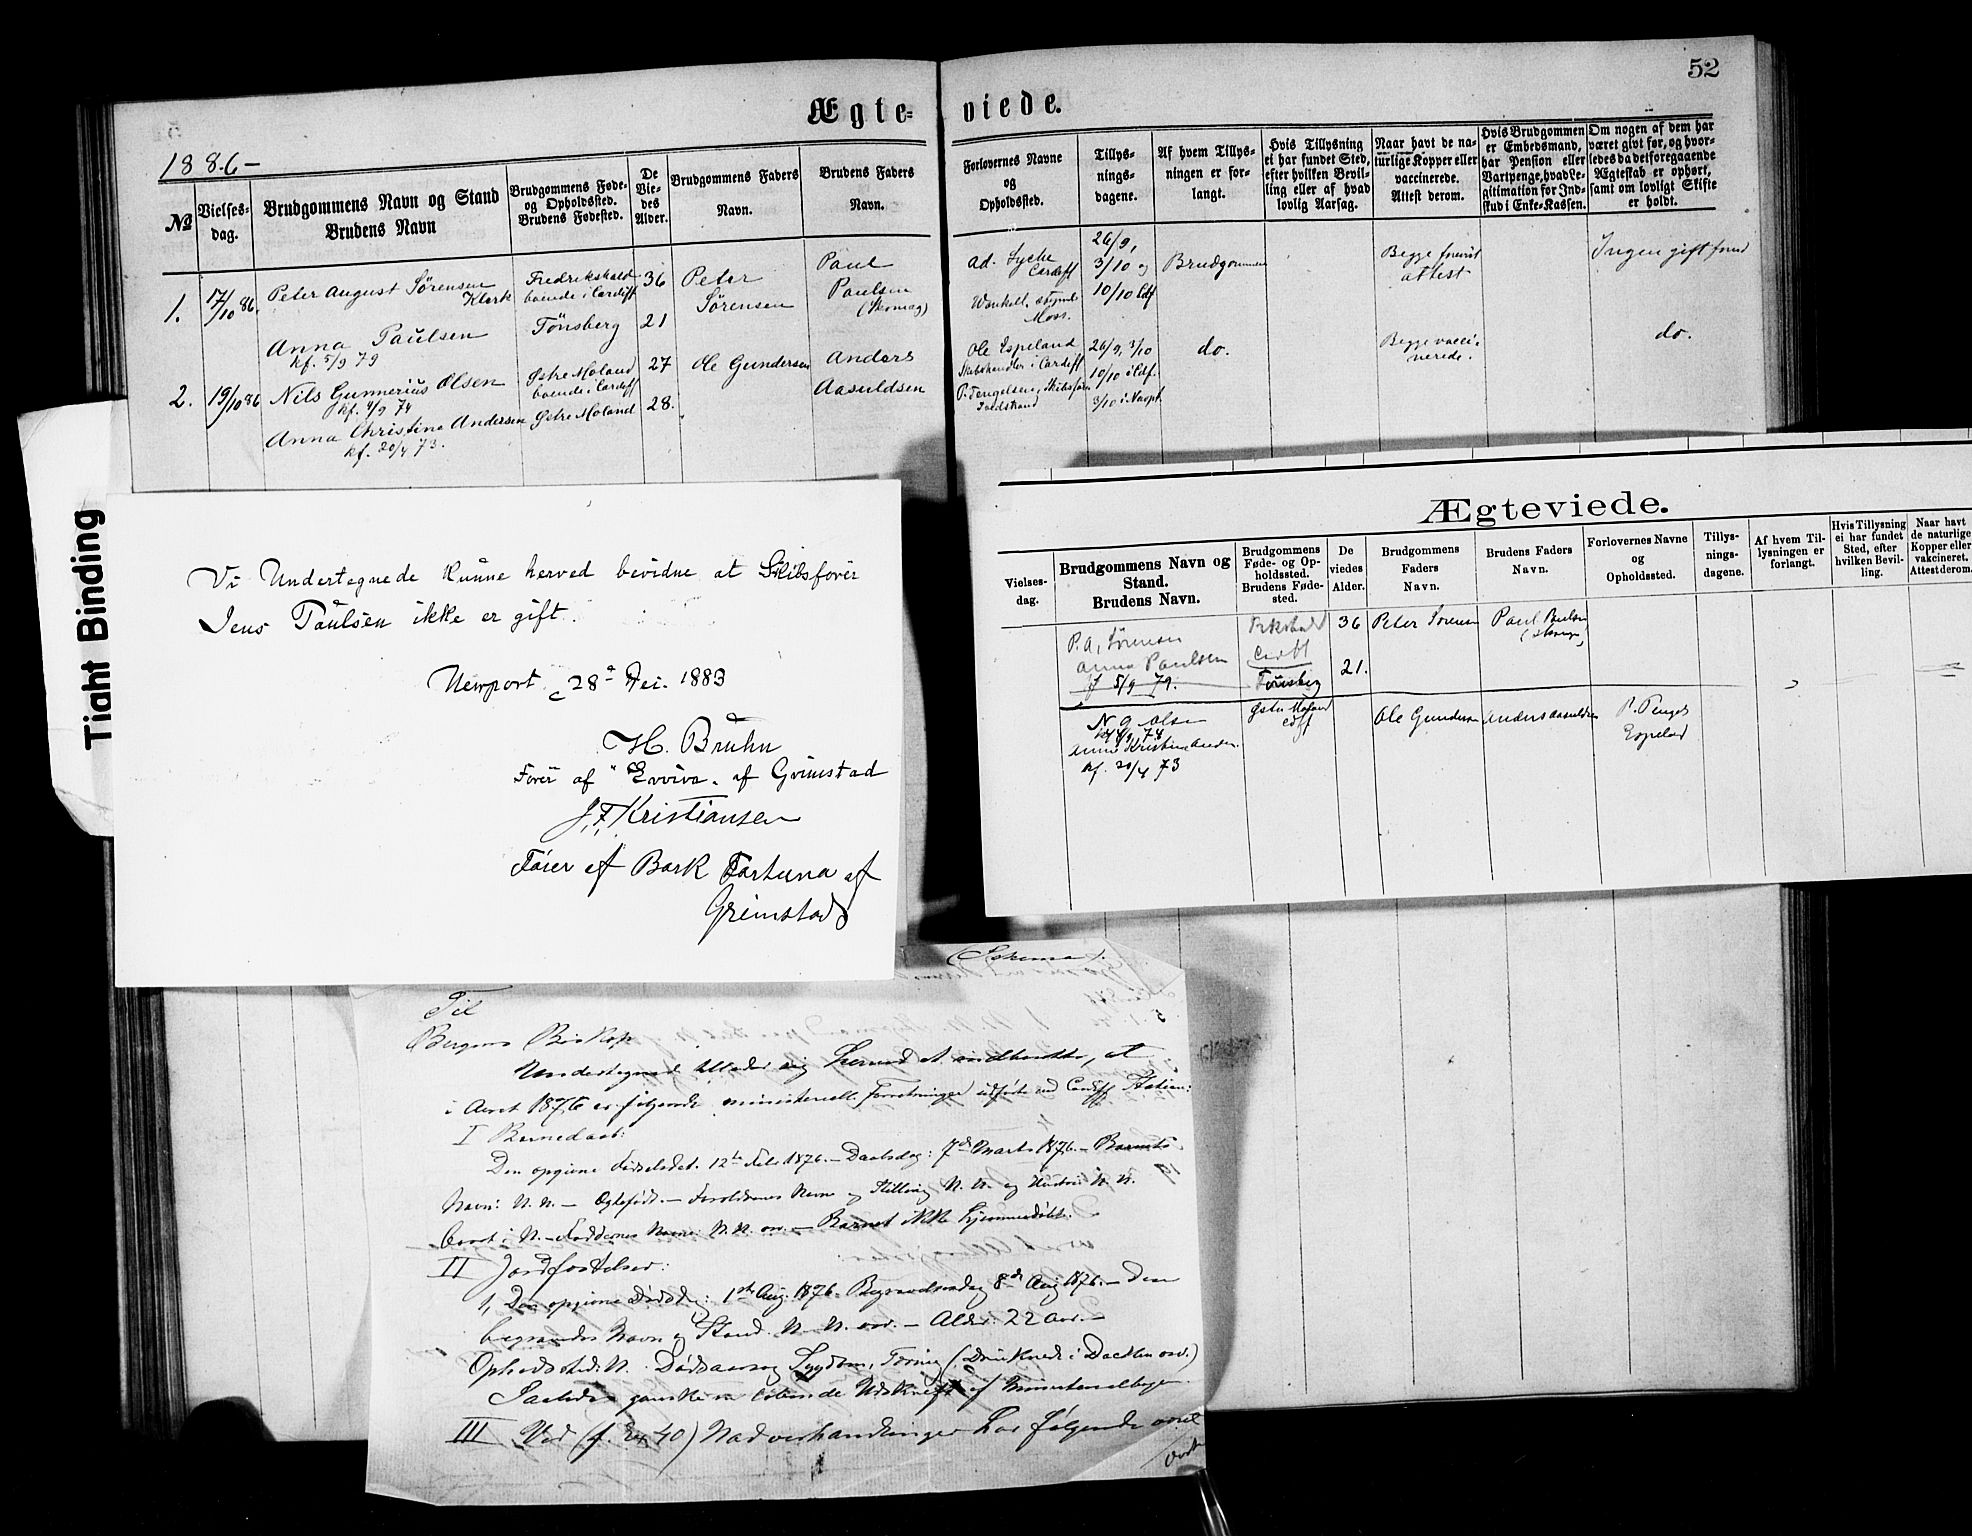 52
Ægte- viede.
1886-
No
Vielses-
dag.
Brudgommens Navn og Stand
Brudens Navn
Brudgommens Føde-
og Opholdssted.
Brudens Fødested.
De
Vie-
des
Alder.
Brudgommens Faders
Navn.
Brudens Faders
Navn.
Forlovernes Navne
og
Opholdssted.
Tillys-
nings-
dagene.
Af hvem Tillys-
ningen er for-
langt.
Hvis Tillysning
ei har fundet Sted,
efter hvilken Bevil-
ling eller af hvad
lovlig Aarsag.
Naar havt de na-
turlige Kopper eller
vaccinerede.
Attest derom.
Hvis Brudgommen
er Embedsmand,
har Pension eller
Vartpenge, hvad Le-
gitimation for Ind-
skud i Enke-Kassen.
Om nogen af dem har
været givt før, og hvor-
ledes da det foregaaende
Ægteskab er ophørt,
samt om lovligt Skifte
er holdt.
1.
17/10 86.
Peter August Sörensen
Klerk
Anna Paulsen
kf. 5/9 79
Fredrikshald
boende i Cardiff
Tönsberg
36
21
Peter
Sörensen
Paul
Paulsen
(Skomag)
Ad. Lyche
Cardiff
Moss.
26/9,
3/10 og
10/10 Cdf
Brudgommen
Begge forevist
attest
Ingen gift forud
2.
19/10 86
Nils Gunnerius Olsen
kf. 4/9 74
Anna Christine Andersen
kf. 20/4 73.
Østre Moland
boende i Cardiff
Østre Moland
27
28.
Ole Gundersen
Anders
Aasuldsen
Ole Espeland
Skibshandler i Cardiff
26/9, 3/10
10/10 i Cdf.
3/10 i Nwpt
do.
Begge vacci-
nerede.
do.
Tight Binding
Vi Undertegnede kunne herved bevidne at Skibsförer
Jens Paulsen ikke er gift.
Newport 28de Dec. 1883
H. Bruhn
Förer af "Evviva" af Grimstad
J. F. Kristiansen
Förer af Bark Fortuna af
Grimstad
Ægteviede.
Vielses-
dag.
Brudgommens Navn og
Stand.
Brudens Navn.
Brudgommens
Føde- og Op-
holdssted.
Brudens Føde-
sted.
De
viedes
Alder.
Brudgommens
Faders
Navn.
Brudens Faders
Navn.
Forlovernes Navne
og
Opholdssted.
Tillys-
nings-
dagene.
Af hvem Til-
lysningen er
forlangt.
Hvis Tillysning
ei har fundet
Sted, efter
hvilken Bevil-
ling.
Naar havt
de naturlige
Kopper eller
vakcineret.
Attest derom.
P. A. Sörensen
Anna Paulsen
kf 5/9 79.
Cdff
Tönsberg
36
21.
Peter Sörensen
Paul Paulsen
N G Olsen
kf 4/9 74
Anna Kristine Anders.
kf. 20/4 73
Østre Moland
Cdff
Ole Gundersen
Anders Aasuldsen
Espeland
(Schema).
Til
Bergens Biskop
Undertegnede tillader sig herved at indberette, at
i Aaret 1876 er følgende ministerielle Forretninger udförte ved Cardiff Station:
I Barnedaab:
Den opgivne Fødselsdat. 12te Feb. 1876. – Daabsdag: 7de Marts 1876. – Barnets
Navn: N. N. – Ægtefødt. – Forældrenes Navn og Stilling N. N. og Hustru N. N.
boet i N. – Faddernes Navne: N. N. osv. – Barnet ikke hjemmedøbt.
II Jordfæstelser:
1, Den opgivne Dødsdag: 1ste Aug. 1876. Begravelsesdag 8de Aug 1876. – Den
begravedes Navn og Stand. N. N. osv. – Alder: 22 Aar. –
Opholdssted: N. Dødsaarsag Sygdom, Tæring (Druknede i Docken osv.)
Saaledes ganske en løbende Udskrift af Ministerialbogen.
III Ved (f. Ex 40) Nadverhandlinger har følgende